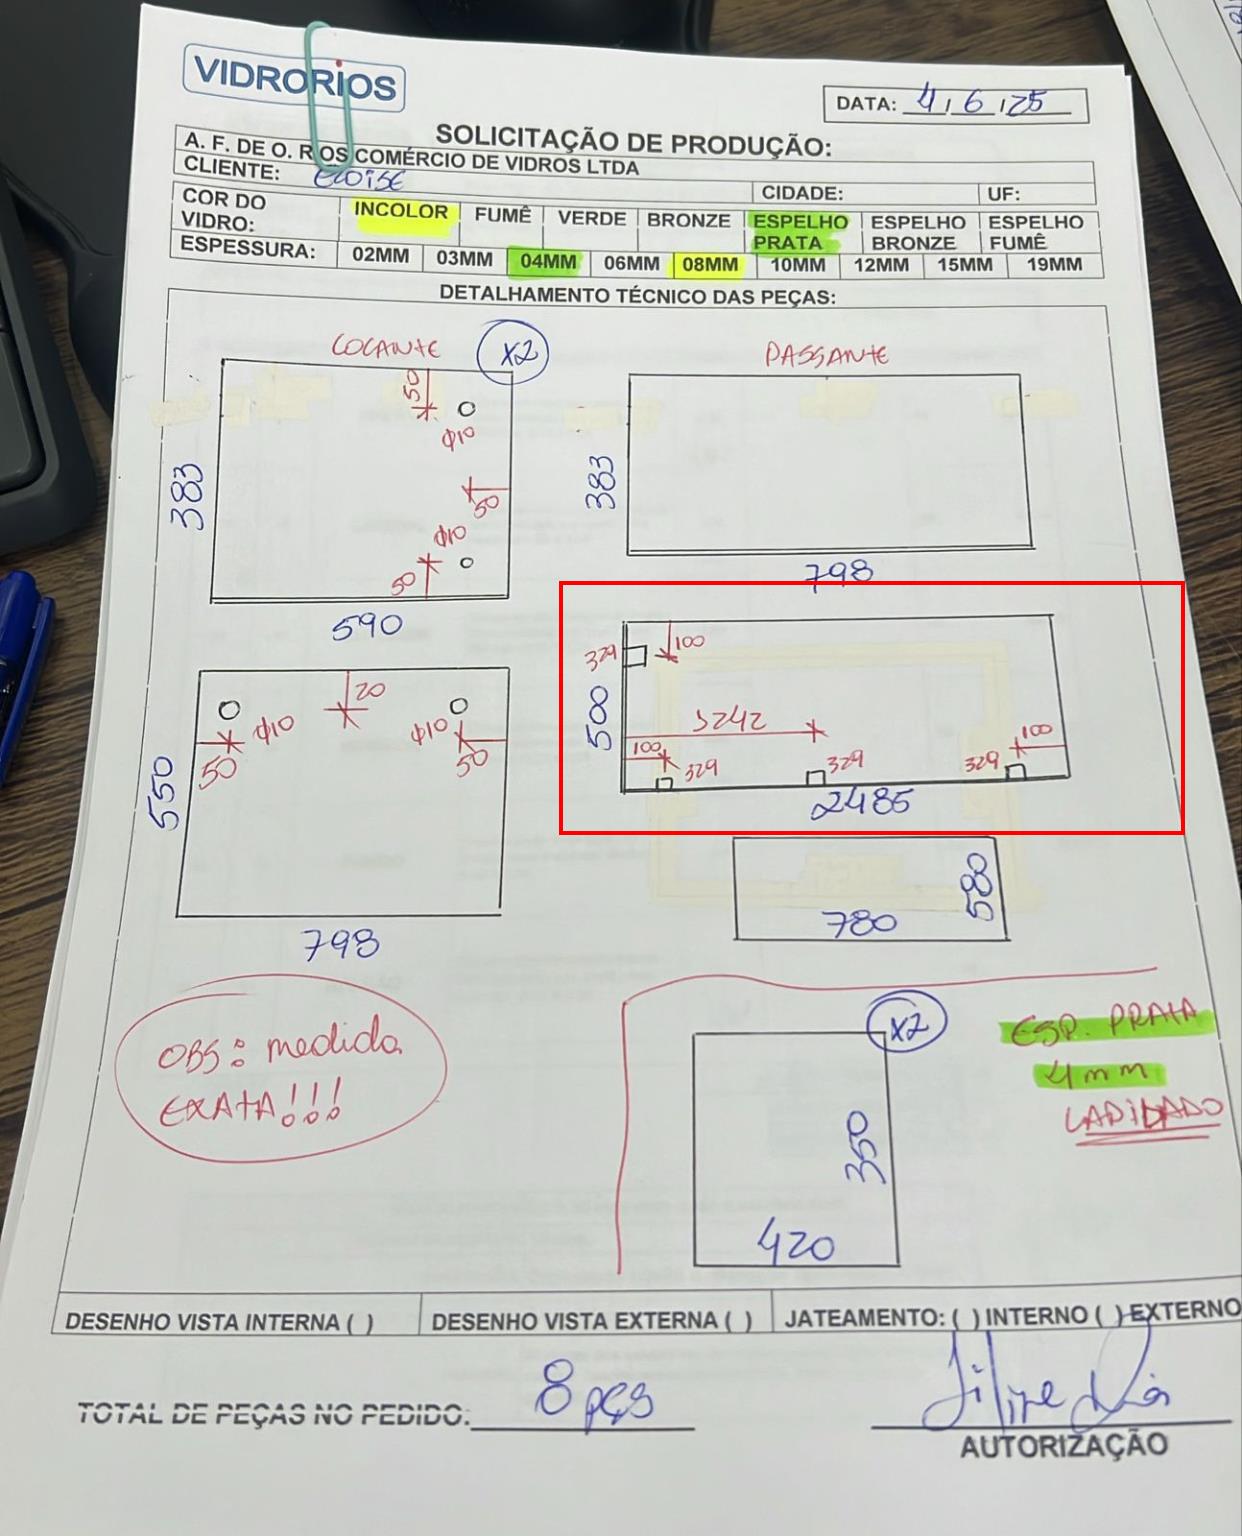 VIDRORIOS
DATA: 4/6/25
SOLICITAÇÃO DE PRODUÇÃO:
A. F. DE O. RIOS COMÉRCIO DE VIDROS LTDA
CLIENTE: ELOISE CIDADE: UF:
COR DO VIDRO: INCOLOR FUMÊ VERDE BRONZE ESPELHO PRATA ESPELHO BRONZE ESPELHO FUMÊ
ESPESSURA: 02MM 03MM 04MM 06MM 08MM 10MM 12MM 15MM 19MM
DETALHAMENTO TÉCNICO DAS PEÇAS:
COCANTE X2
50
Φ10
383
50
Φ10
50
590
PASSANTE
383
798
20
Φ10 Φ10
50 50
550
798
329 100
500
1242
100 329 329 329 100
2485
580
780
OBS: medida
EXATA!!!
X2
350
420
ESP. PRATA
4mm
LAPIDADO
DESENHO VISTA INTERNA ( ) DESENHO VISTA EXTERNA ( ) JATEAMENTO: ( ) INTERNO ( ) EXTERNO
TOTAL DE PEÇAS NO PEDIDO: 8 pçs
Filipe Rios
AUTORIZAÇÃO